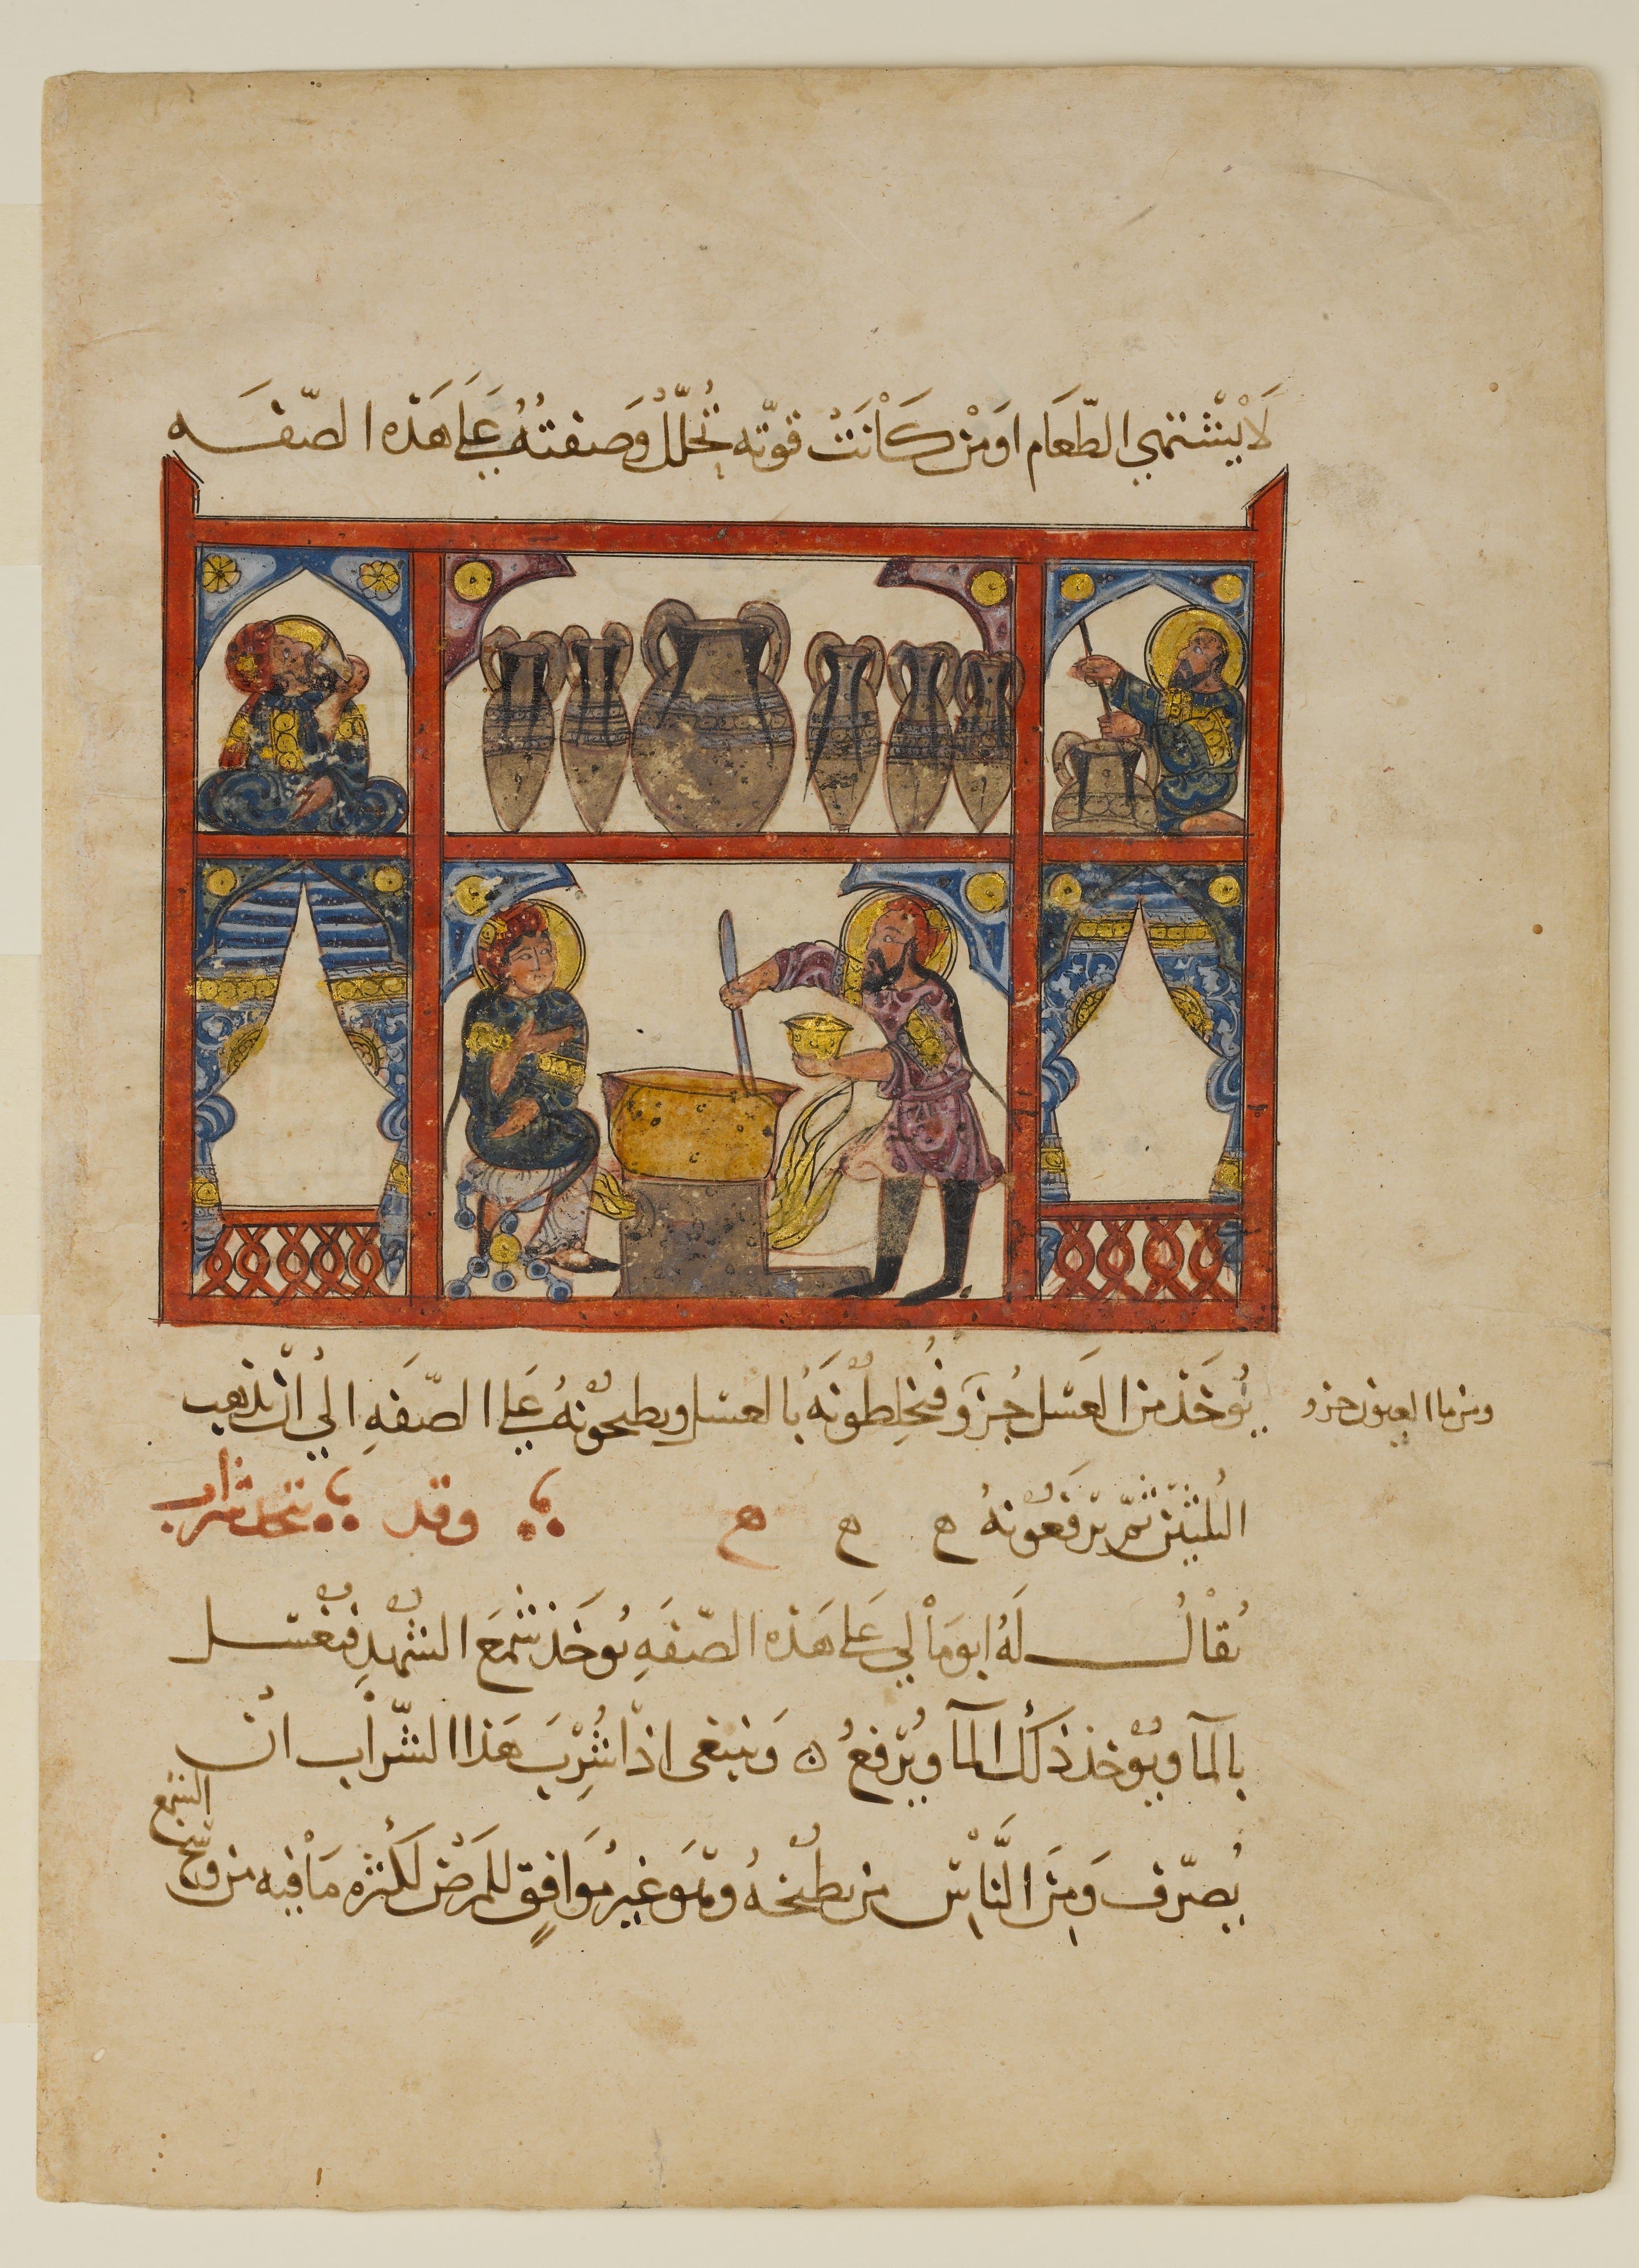 لَا يَشْتَهِي الطَّعَام اوَ مَنْ كَانَتْ قوّته تُحلّلُ وَصفتُهُ عَلَى هَذه الصّفَه
يُوخَذ من العَسَل جُزو فيُخلِطُونَهُ بالعسَل ويطبخُونهُ عَلى الصّفَهِ الي انْ يَذهب
ومن ما العيون جزو
الثلثَيْن ثمّ يَرفَعُونهُ ه ه ه وقد يتخذ شراب
يُقالُ لَهُ ابوَمَالي عَلى هَذه الصّفَهِ يُوخَذ شمعَ الشّهدِ فيُغسَل
بالمآ ويُوخذ ذَلك المآ ويُرْفعُ ه وَينبغى اذا شُرِبَ هَذا الشّراب انْ
يُصرّف وَمِنَ النَّاسِ من يطبخُهُ وهَوَ غيرُ مُوَافِقٍ للمرَضَى لكثره مَا فيه من وسَخ
الشمع